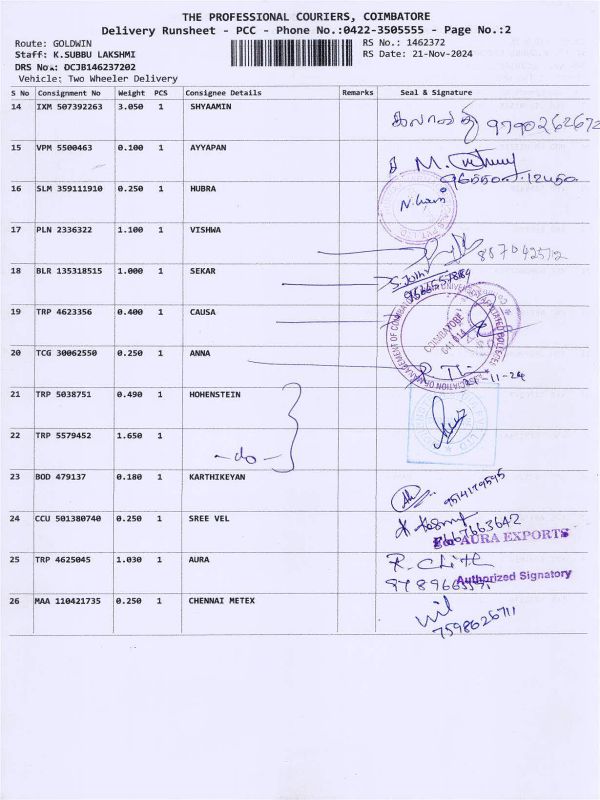 THE PROFESSIONAL COURIERS, COIMBATORE
Delivery Runsheet - PCC - Phone No.:0422-3505555 - Page No.:2
Route: GOLDWIN RS No.: 1462372
Staff: K.SUBBU LAKSHMI RS Date: 21-Nov-2024
DRS No.: DCJB146237202
Vehicle: Two Wheeler Delivery
S No Consignment No Weight PCS Consignee Details Remarks Seal & Signature
14 IXM 507392263 3.050 1 SHYAAMIN 9790262672
15 VPM 5500463 0.100 1 AYYAPAN M.
16 SLM 359111910 0.250 1 HUBRA
17 PLN 2336322 1.100 1 VISHWA
18 BLR 135318515 1.000 1 SEKAR
19 TRP 4623356 0.400 1 CAUSA COIMBATORE
20 TCG 30062550 0.250 1 ANNA
21 TRP 5038751 0.490 1 HOHENSTEIN
22 TRP 5579452 1.650 1 -do-
23 BOD 479137 0.180 1 KARTHIKEYAN 9514179595
24 CCU 501380740 0.250 1 SREE VEL 8667663642
For AURA EXPORTS
25 TRP 4625045 1.030 1 AURA
Authorized Signatory
26 MAA 110421735 0.250 1 CHENNAI METEX
7598626711